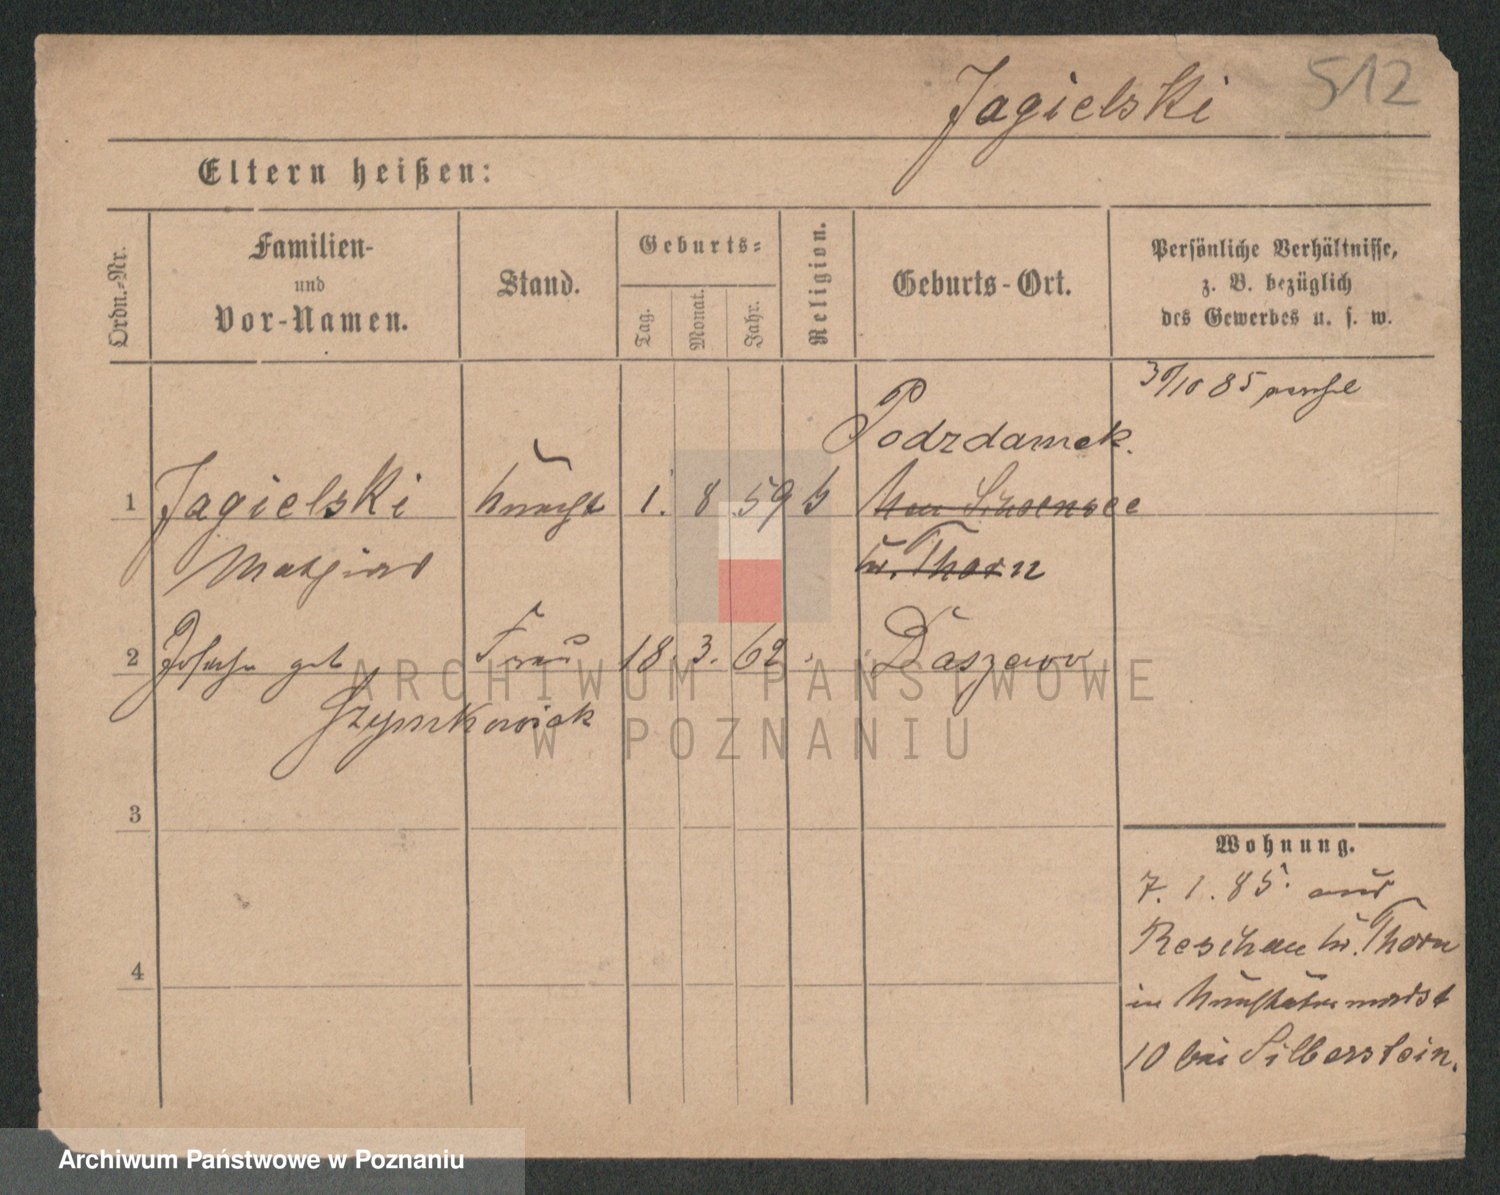 512
Jagielski
Eltern heißen:
Ordn.-Nr.
Familien-
und
Vor-Namen.
Stand.
Geburts-
Tag.
Monat.
Jahr.
Religion.
Geburts-Ort.
Persönliche Verhältnisse,
z. B. bezüglich
des Gewerbes u. s. w.
3/10 85
Podrdamek.
1 Jagielski Knecht 1. 8 59
Mathias Kr. Thorn
2 Josepha geb Frau 18. 3. 62 Daszewo
Szymkowiak
3
4
Wohnung.
7. 1. 85. aus
Reschau Kr. Thorn
in
10 bei Silberstein.
ARCHIWUM PAŃSTWOWE
W POZNANIU
Archiwum Państwowe w Poznaniu